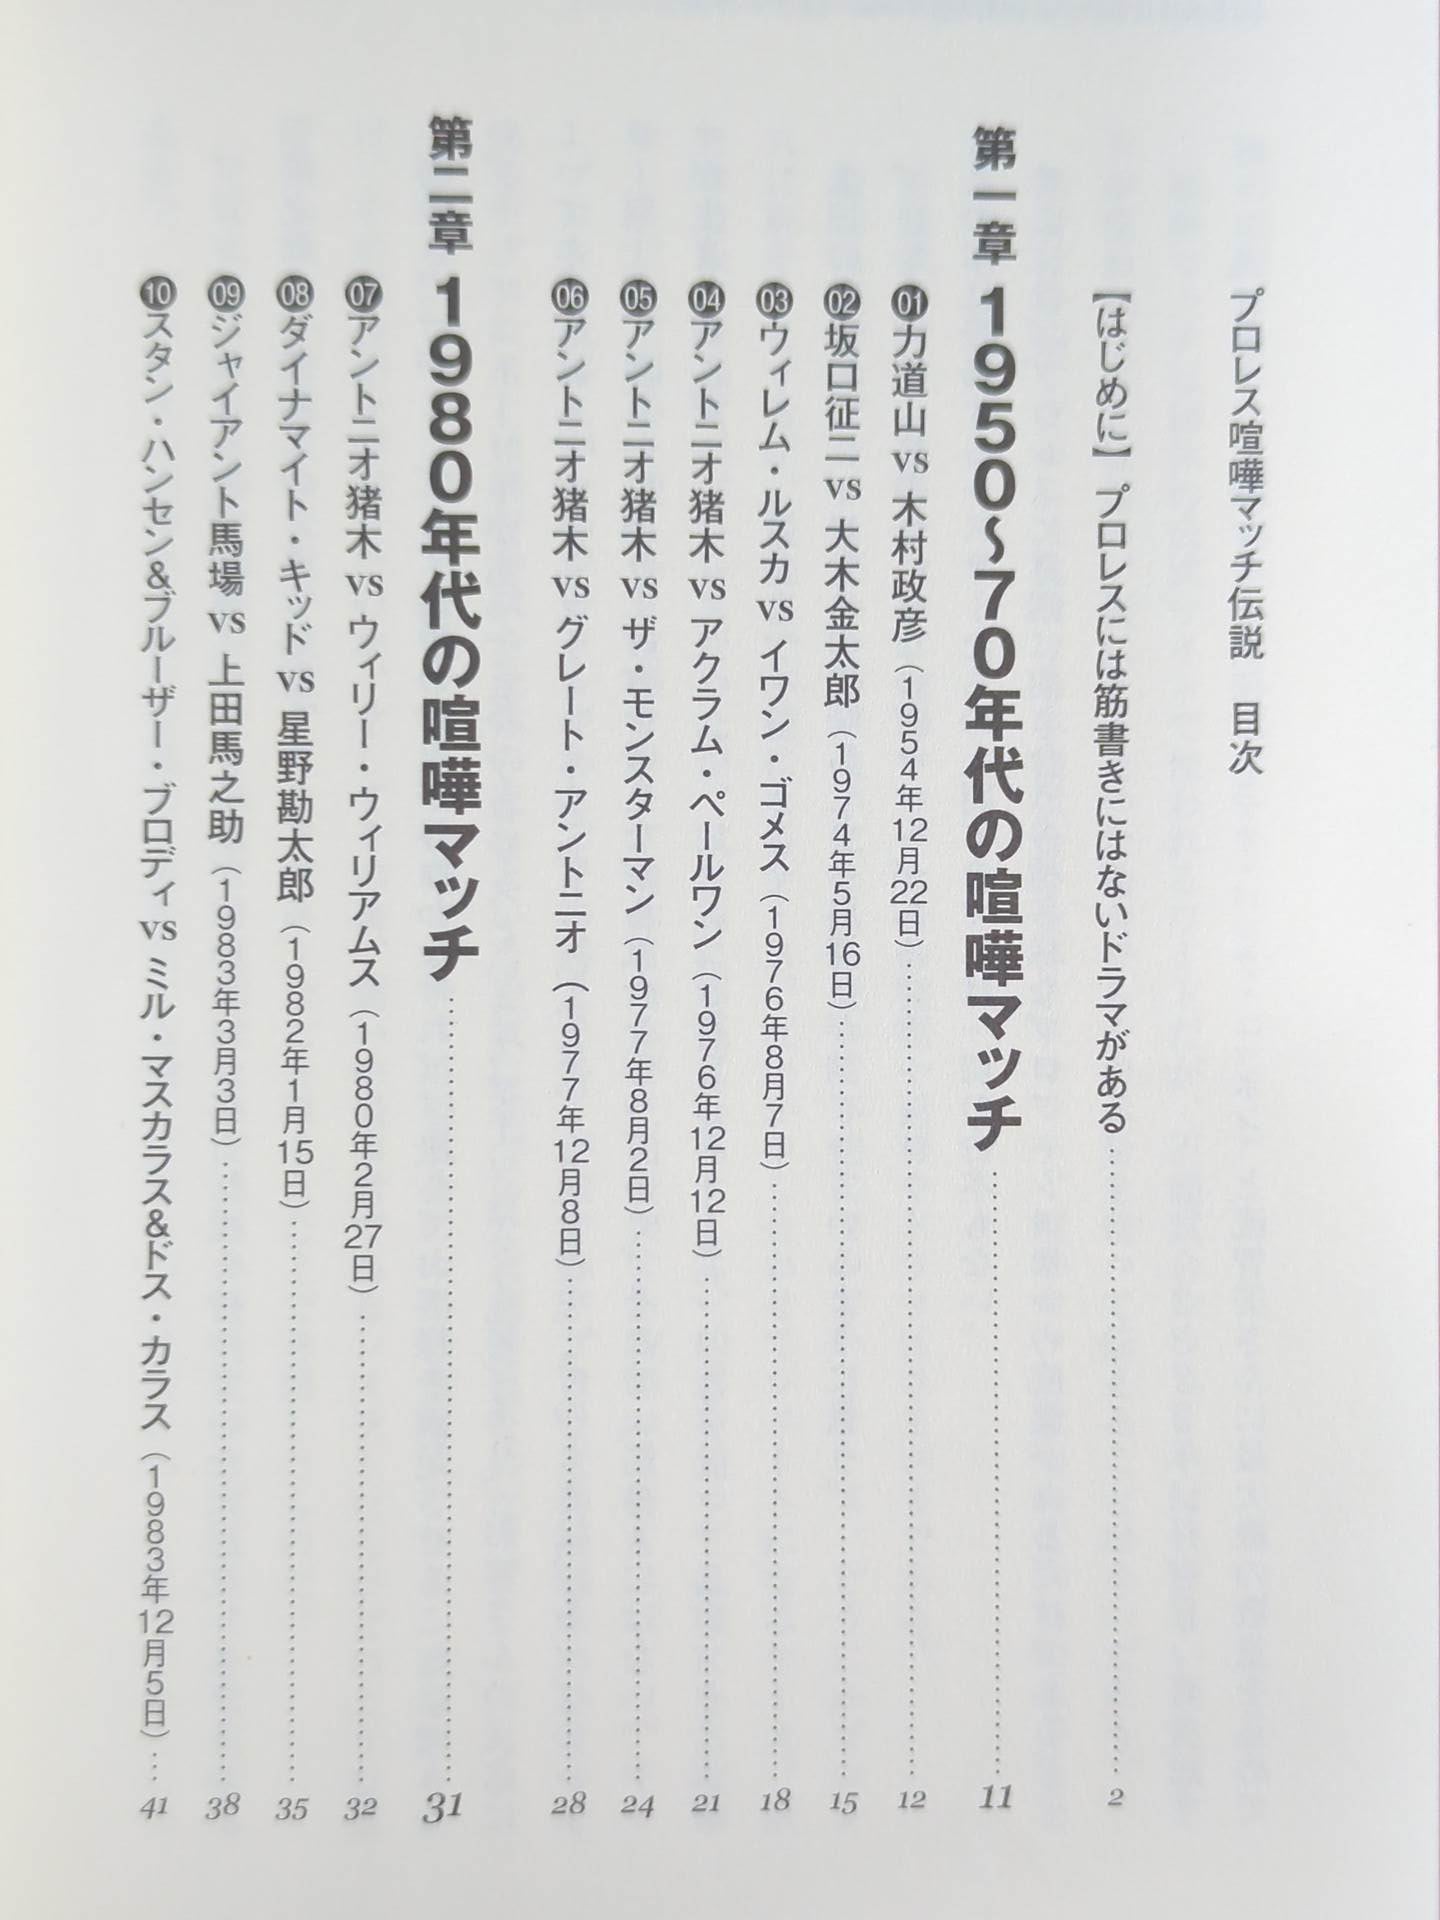 プロレス喧嘩マッチ伝説　目次
【はじめに】プロレスには筋書きにはないドラマがある……2
第一章 1950〜70年代の喧嘩マッチ……11
01 力道山 vs 木村政彦（1954年12月22日）……12
02 坂口征二 vs 大木金太郎（1974年5月16日）……15
03 ウィレム・ルスカ vs イワン・ゴメス（1976年8月7日）……18
04 アントニオ猪木 vs アクラム・ペールワン（1976年12月12日）……21
05 アントニオ猪木 vs ザ・モンスターマン（1977年8月2日）……24
06 アントニオ猪木 vs グレート・アントニオ（1977年12月8日）……28
第二章 1980年代の喧嘩マッチ……31
07 アントニオ猪木 vs ウィリー・ウィリアムス（1980年2月27日）……32
08 ダイナマイト・キッド vs 星野勘太郎（1982年1月15日）……35
09 ジャイアント馬場 vs 上田馬之助（1983年3月3日）……38
10 スタン・ハンセン&ブルーザー・ブロディ vs ミル・マスカラス&ドス・カラス（1983年12月5日）…41